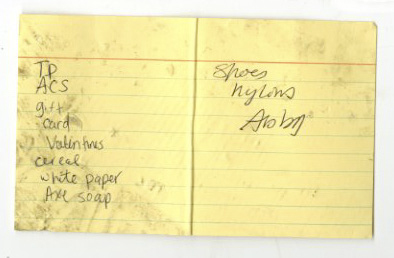 TP
ACS
gift
card
Valentines
cereal
white paper
Axe soap
Shoes
nylons
Abby